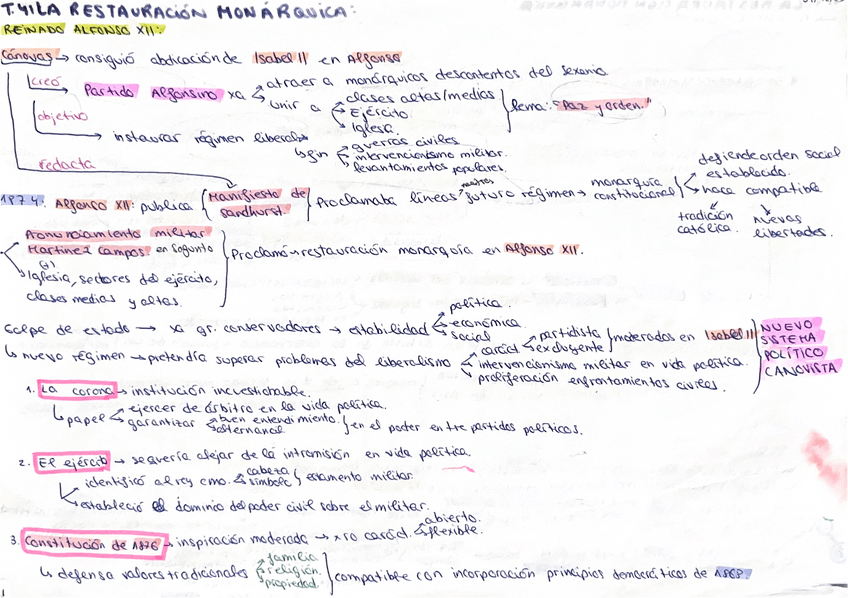 T.4: LA RESTAURACIÓN MONÁRQUICA:
REINADO ALFONSO XII:
Cánovas → consiguió abdicación de Isabel II en Alfonso
creó
Partido Alfonsino xa
atraer a monárquicos descontentos del sexenio
unir a
clases altas/medias
Ejército
Iglesia.
lema: "Paz y orden."
objetivo
instaurar régimen liberal
sin
guerras civiles
intervencionismo militar.
levantamientos populares.
redacta
1874. Alfonso XII: publica
Manifiesto de Sandhurst.
Proclamaba líneas maestras futuro régimen → monarquía constitucional
defiende orden social establecido.
hace compatible
tradición católica.
nuevas libertades.
Pronunciamiento militar
Martínez Campos. en Sagunto
(+)
Iglesia, sectores del ejército,
clases medias y altas.
Proclamó → restauración monarquía en Alfonso XII.
Golpe de estado → xa gr. conservadores → estabilidad
política.
económica
social
nuevo régimen → pretendía superar problemas del liberalismo
caráct.
partidista
excluyente
moderados en Isabel II
intervencionismo militar en vida política.
proliferación enfrontamientos civiles.
NUEVO
SISTEMA
POLÍTICO
CANOVISTA
1. La corona → institución incuestionable.
papel
ejercer de árbitro en la vida política.
garantizar
buen entendimiento
alternancia
en el poder entre partidos políticos.
2. El ejército → se quería alejar de la intromisión en vida política.
identificó al rey cmo.
cabeza
símbolo
estamento militar
estableció el dominio del poder civil sobre el militar.
3. Constitución de 1876 → inspiración moderada → xro caráct.
abierto.
flexible.
defensa valores tradicionales
familia
religión
propiedad.
compatible con incorporación principios democráticos de 1869.